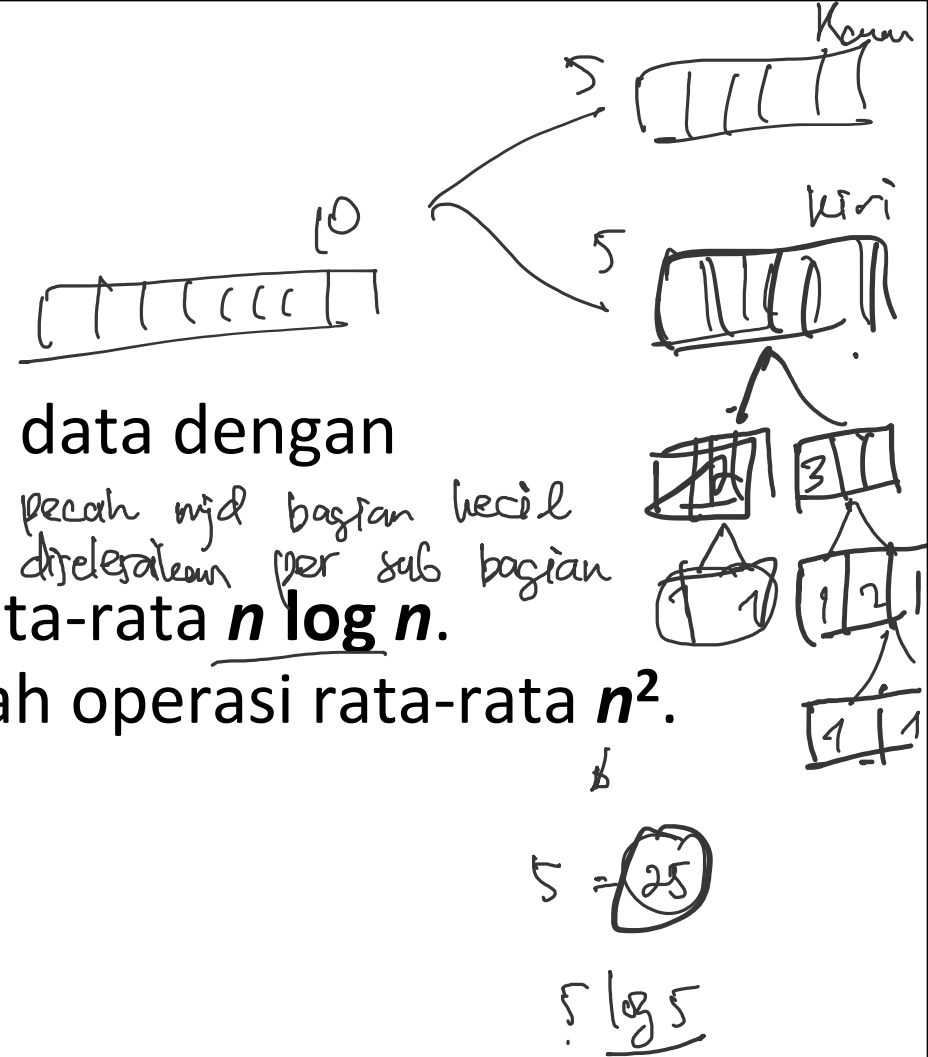 Kanan
5
10
kiri
5
data dengan
2 3
pecah mjd bagian kecil
diselesaikan per sub bagian
1 1 1 2 1
ta-rata n log n.
ah operasi rata-rata n².
1 1
5 = 25
5 log 5